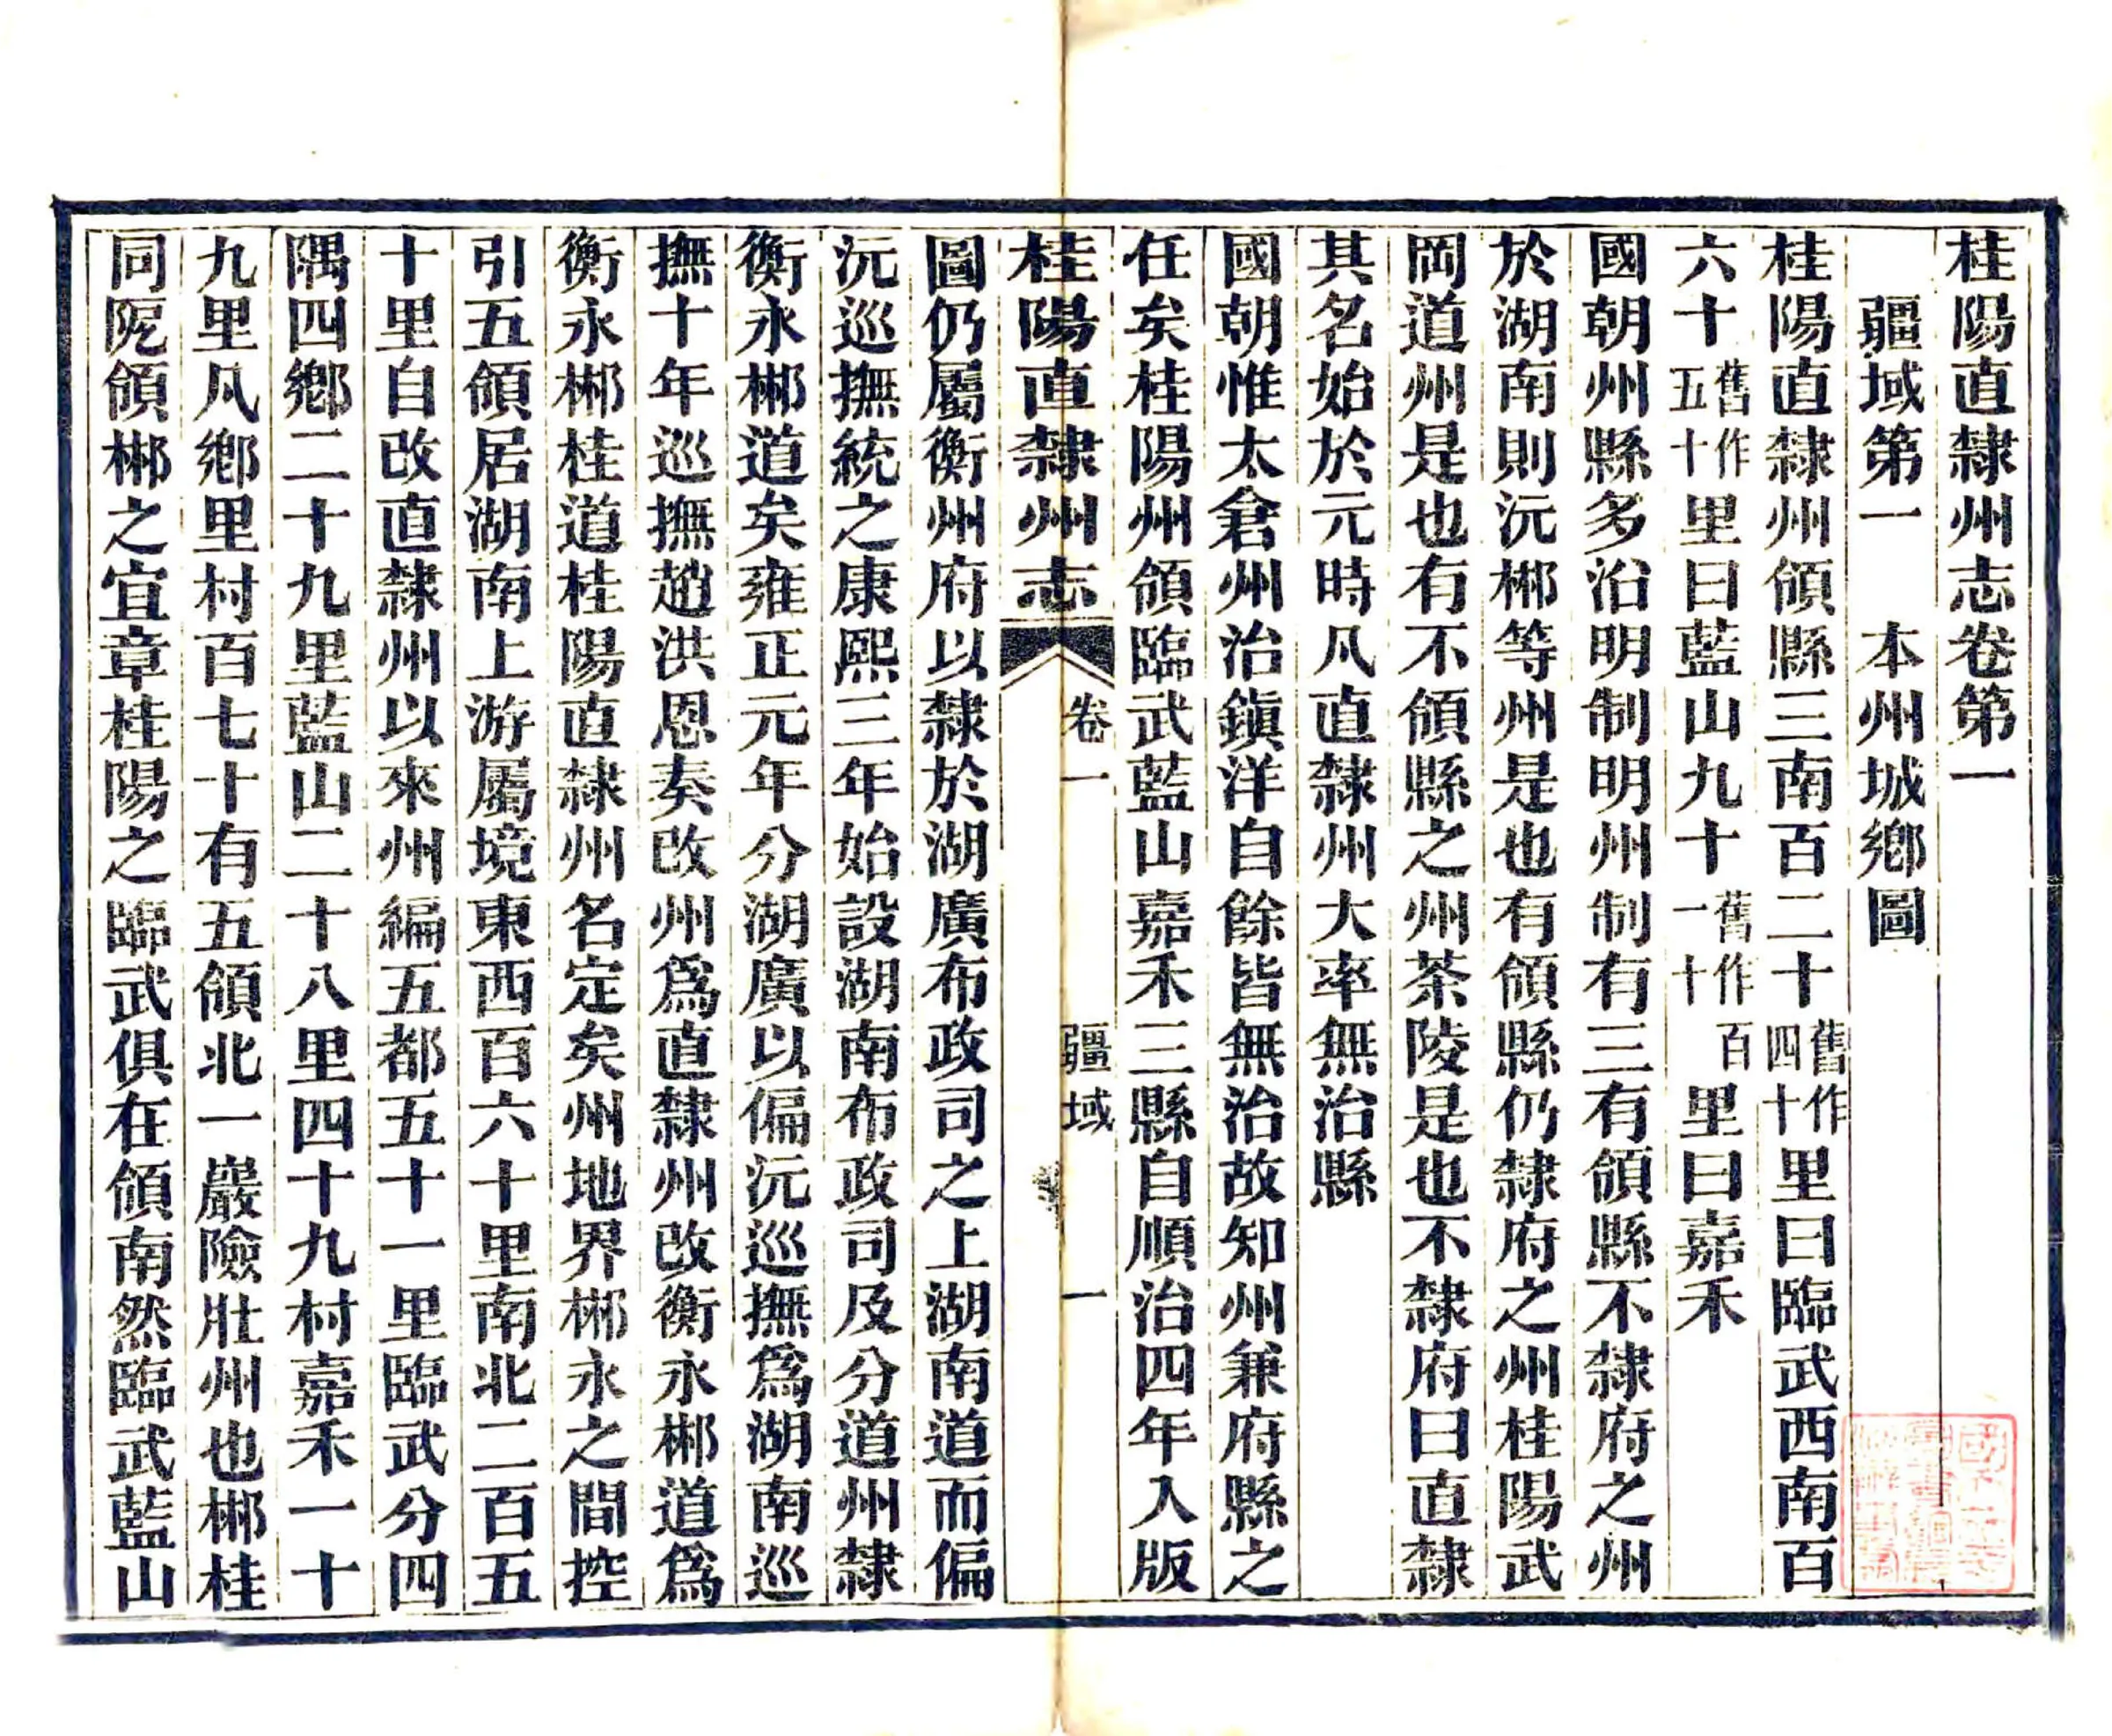 桂陽直隸州志卷第一
疆域第一　本州城鄉圖
桂陽直隸州領縣三南百二十舊作四十里曰臨武西南百
六十舊作五十里曰藍山九十舊作百一十里曰嘉禾
國朝州縣多沿明制明州制有三有領縣不隸府之州
於湖南則沅郴等州是也有領縣仍隸府之州桂陽武
岡道州是也有不領縣之州茶陵是也不隸府曰直隸
其名始於元時凡直隸州大率無治縣
國朝惟太倉州治鎮洋自餘皆無治故知州兼府縣之
任矣桂陽州領臨武藍山嘉禾三縣自順治四年入版
桂陽直隸州志　卷一　疆域　一
圖仍屬衡州府以隸於湖廣布政司之上湖南道而偏
沅巡撫統之康熙三年始設湖南布政司及分道州隸
衡永郴道矣雍正元年分湖廣以偏沅巡撫爲湖南巡
撫十年巡撫趙洪恩奏改州爲直隸州改衡永郴道爲
衡永郴桂道桂陽直隸州名定矣州地界郴永之間控
引五領居湖南上游屬境東西百六十里南北二百五
十里自改直隸州以來州編五都五十一里臨武分四
隅四鄉二十九里藍山二十八里四十九村嘉禾一十
九里凡鄉里村百七十有五領北一巖險壯州也郴桂
同阨領郴之宜章桂陽之臨武俱在領南然臨武藍山